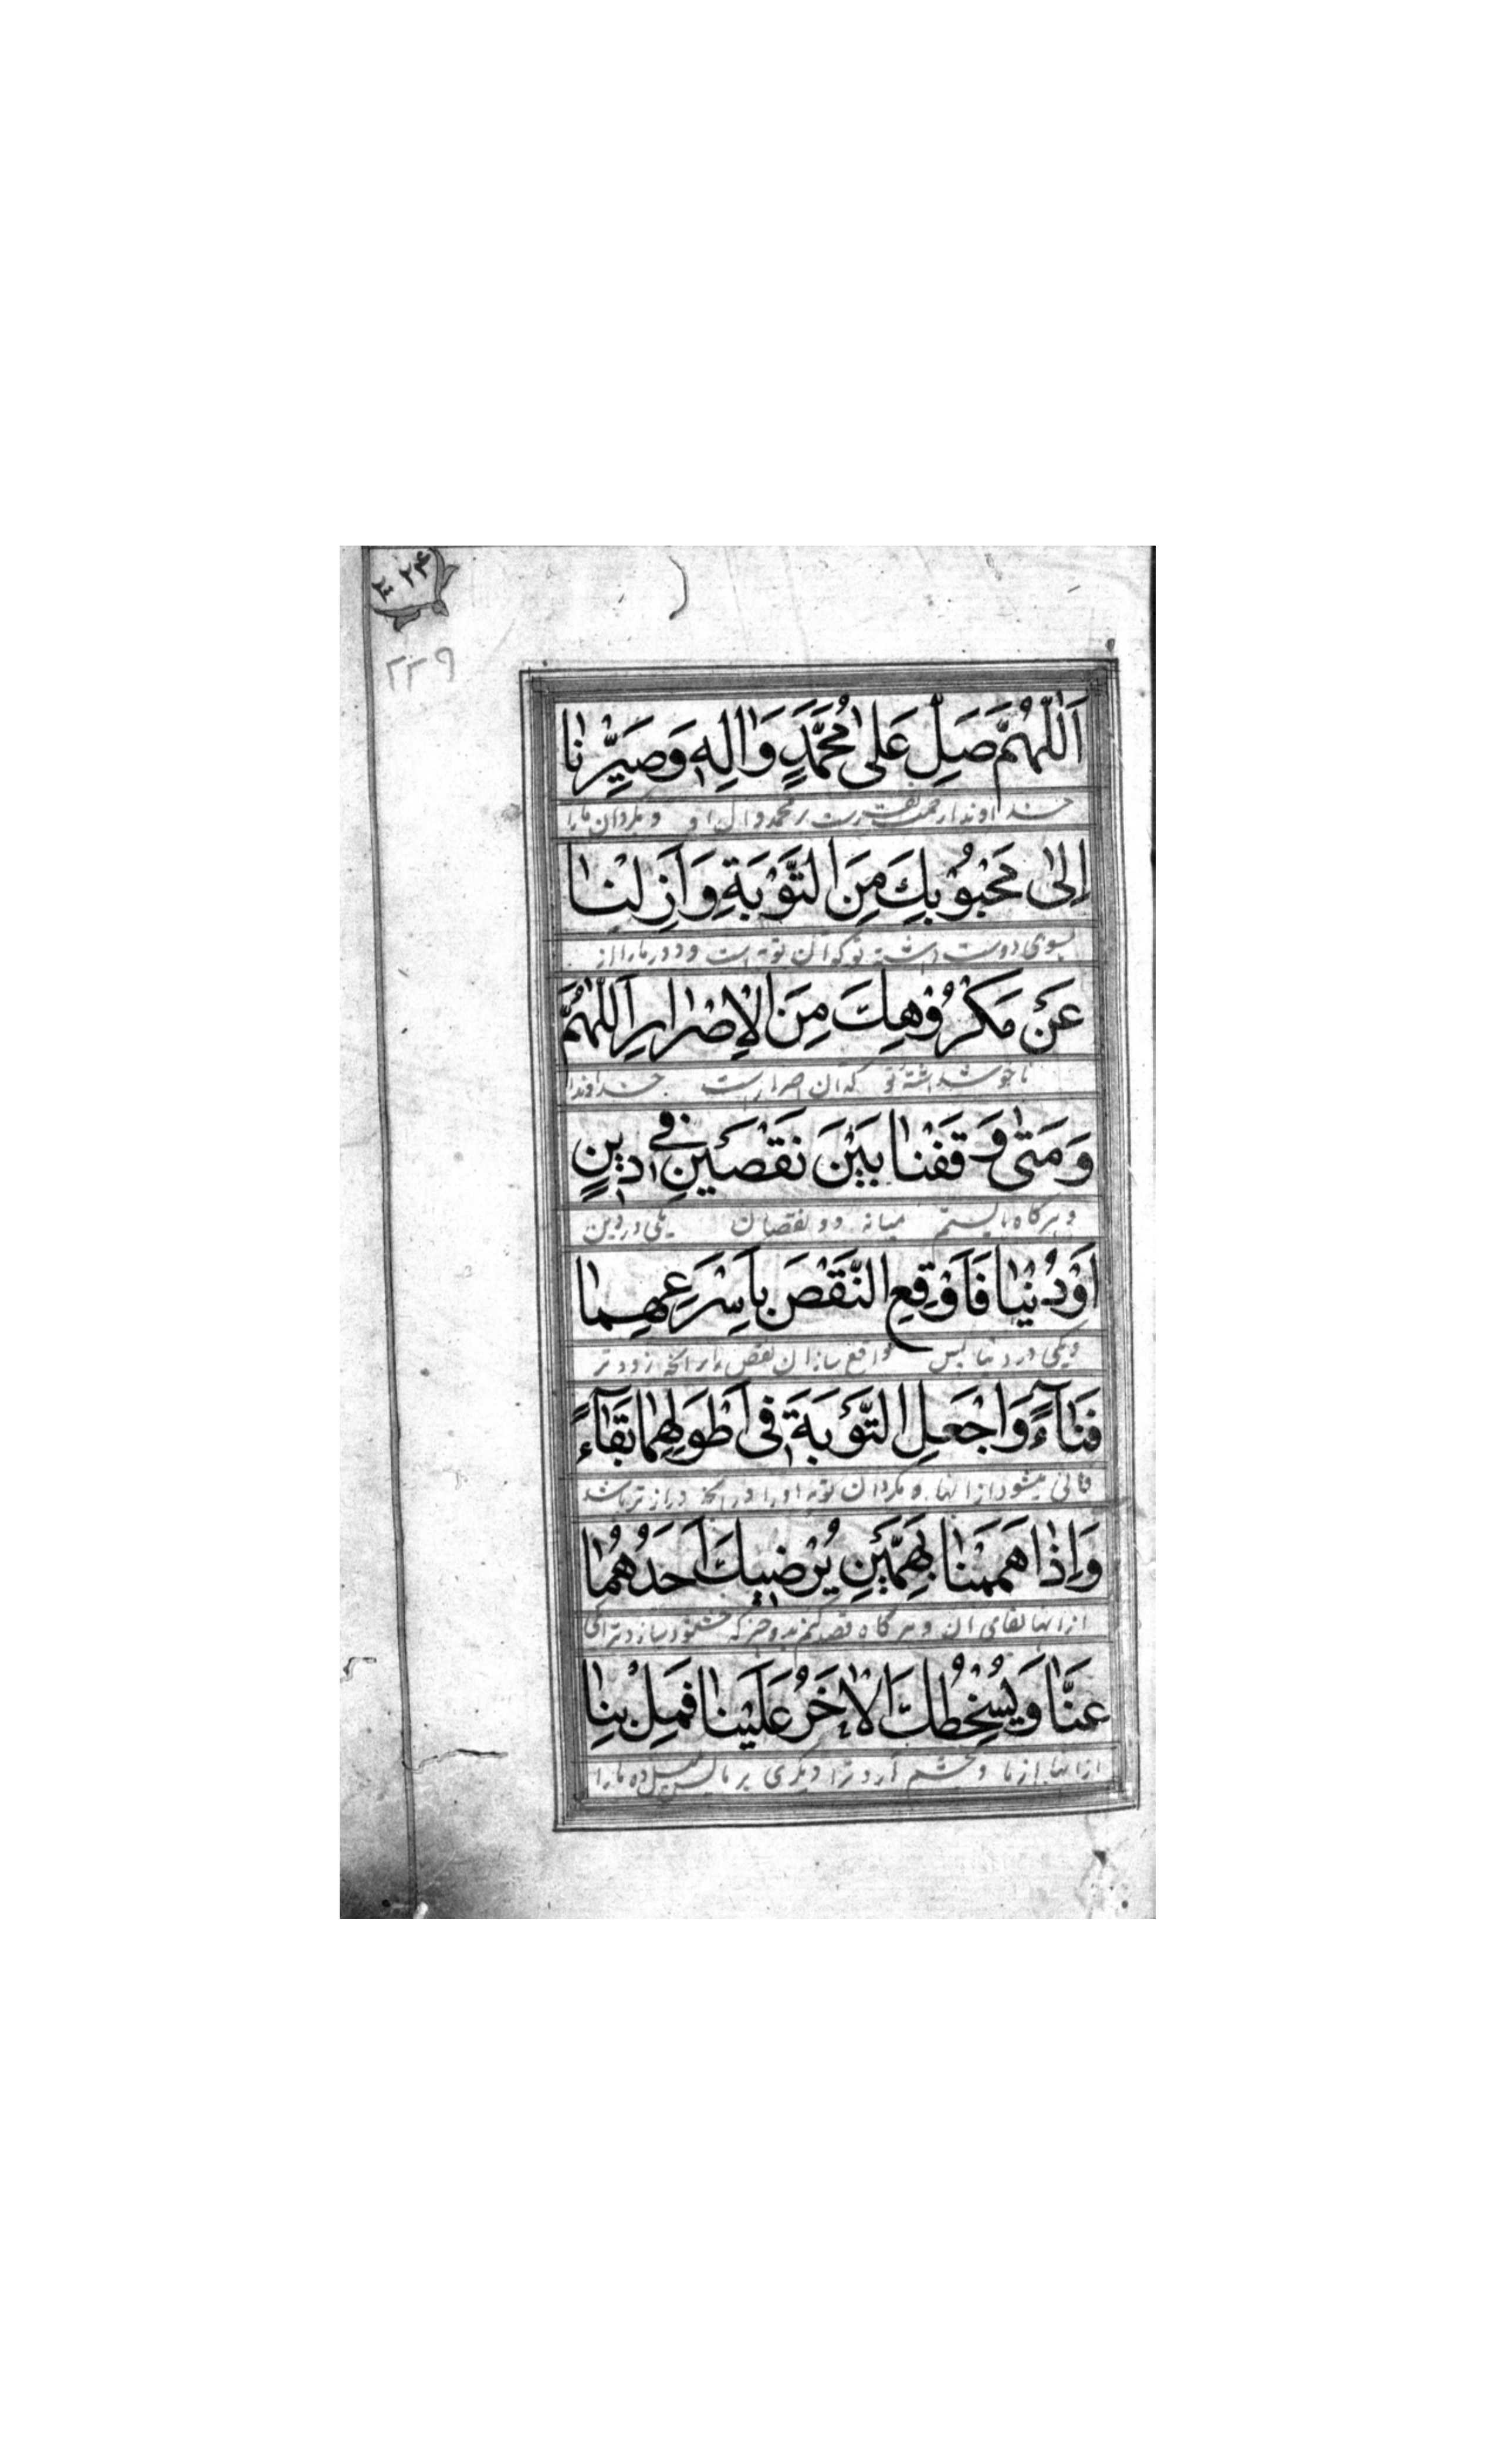 ٢٢٩
اَللّٰهُمَّ صَلِّ عَلىٰ مُحَمَّدٍ وَاٰلِهِ وَصَيِّرْنٰا
خداوندا رحمت بفرست بر محمد و ال او و بگردان ما را
اِلىٰ مَحْبُوْبِكَ مِنَ التَّوْبَةِ وَاَزِلْنٰا
بسوی دوست داشته تو که آن توبه است و دور ما را از
عَنْ مَكْرُوْهِكَ مِنَ الْاِصْرٰارِ اَللّٰهُمَّ
ناخوش داشتهٔ تو که آن اصرار است خداوندا
وَمَتىٰ وَقَفْنٰا بَيْنَ نَقْصَيْنِ فِي دِينٍ
و هرگاه بایستم میانه دو نقصان یکی در دین
اَوْدُنْيٰا فَاَوْقِعِ النَّقْصَ بِاَسْرَعِهِمٰا
و یکی در دنیا پس واقع ساز ان نقص را بر آنچه زودتر
فَنٰآءً وَاجْعَلِ التَّوْبَةَ فِي اَطْوَلِهِمٰا بَقٰآءً
فانی میشود از انها و بگردان توبه او را در آنچه درازتر باشد
وَاِذٰا هَمَمْنٰا بِهَمَّيْنِ يُرْضِيكَ اَحَدُهُمٰا
از انها بقای ان و هر گاه قصد کنم بدو چیز که خشنود سازد ترا یکی
عَنّٰا وَيُسْخِطُكَ الْاٰخَرُ عَلَيْنٰا فَمِلْ بِنٰا
از انها از ما و بخشم آرد ترا دیگری بر ما پس میل ده ما را